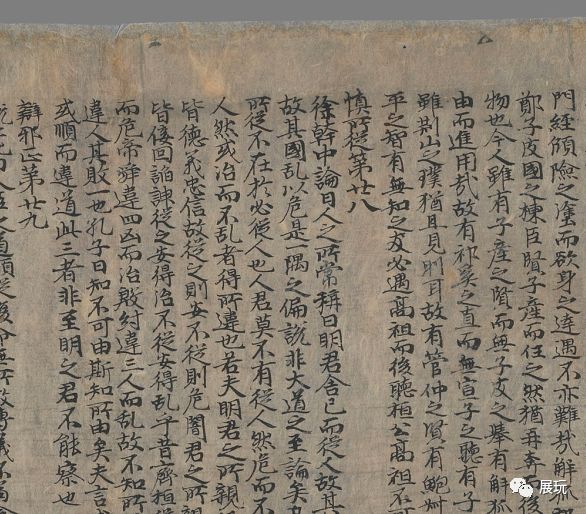 門經傾險之塗而欲身之速遇不亦難哉解狐
鄭子皮國之棟臣賢子産而任之然猶再奔而後
物也今人雖有子産之賢而無子皮之舉有解狐
由而進用哉故有祁奚之直而無宣子之聽有子
雖荆山之璞猶且見刖耳故有管仲之賢有鮑叔
平之智有無知之友必遇高祖而後聽桓公高祖不可
慎所從第廿八
徐幹中論曰人之所常稱曰明君舍已而從人故其
故其國乱以危是一隅之偏説非大道之至論矣
所從不在於必從人也人君莫不有從人然危而不
人然或治而不乱者得所違也若夫明君之所親
皆德義忠信故從之則安不從則危闇君之所親
皆佞回諂諛從之安得治不從安得乱乎昔齊桓
而危帝舜違四凶而治殷紂違三人而乱故不知所
違人其敗一也孔子曰知不可由斯知所由矣夫言或
或順而違道此三者非至明之君不能察也
辯邪正第廿九
展玩